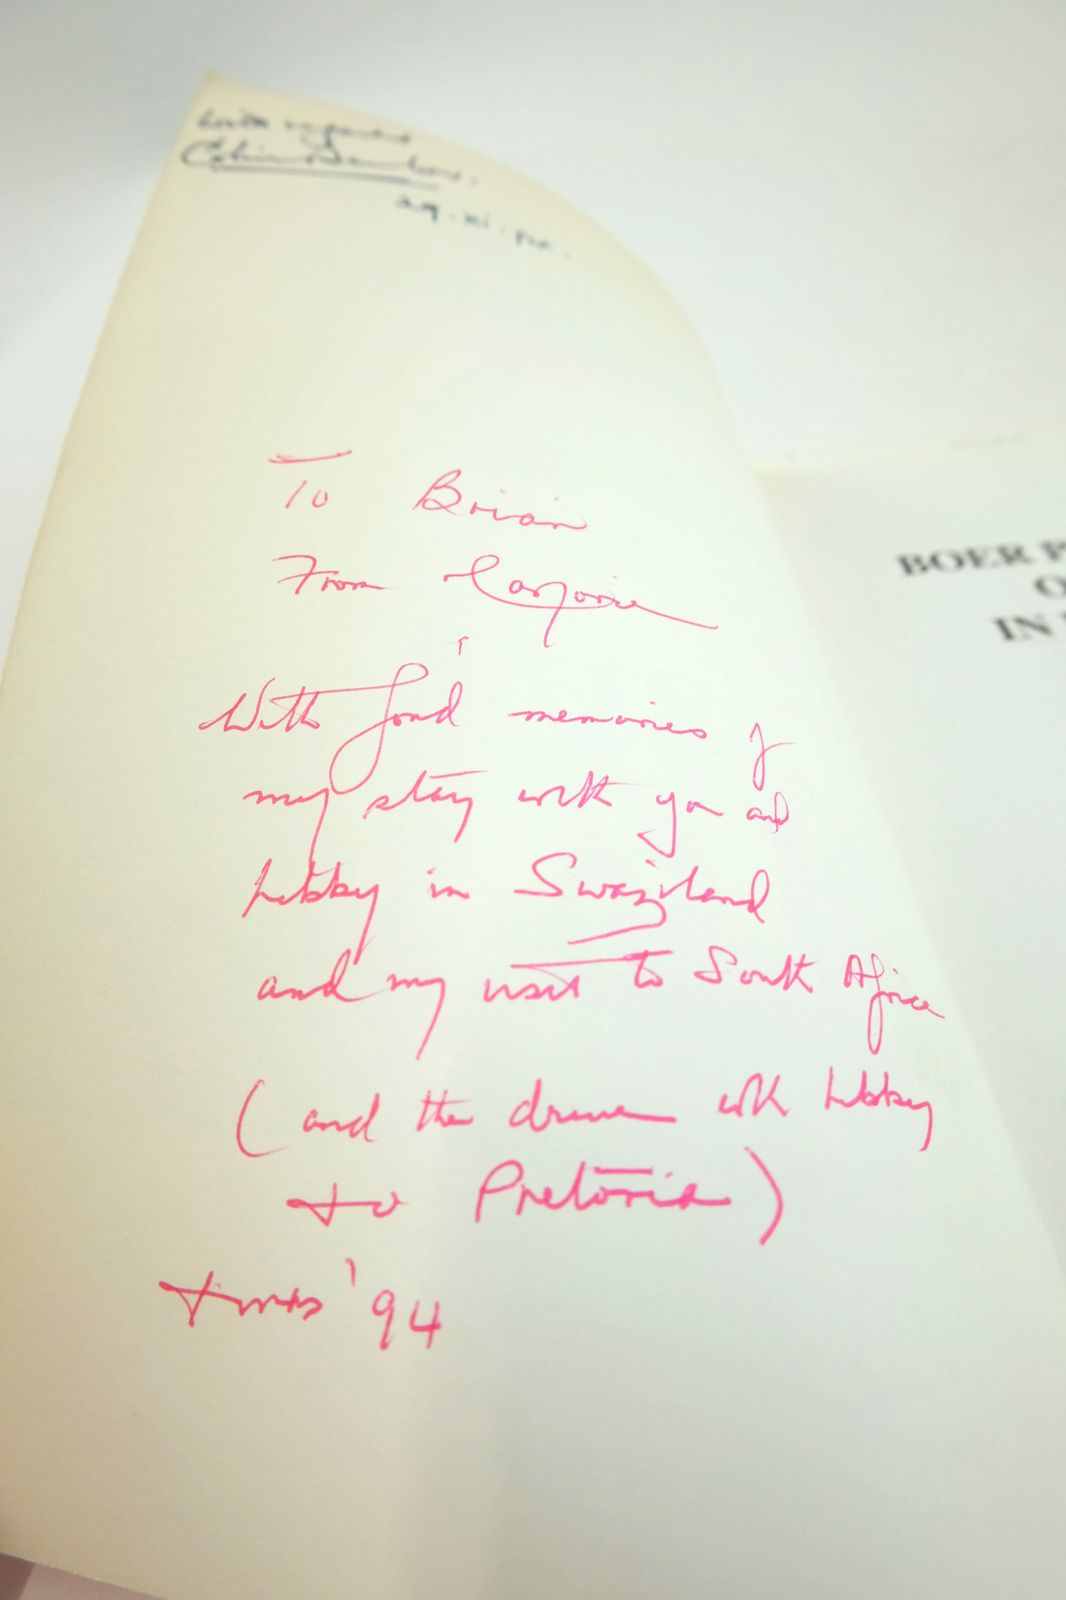 with regards
Colin
29.xi.
To Brian
From Marjorie
With fond memories of
my stay with you and
Libby in Swaziland
and my visit to South Africa
(and the drive with Libby
to Pretoria)
Xmas '94
BOER P
O
IN